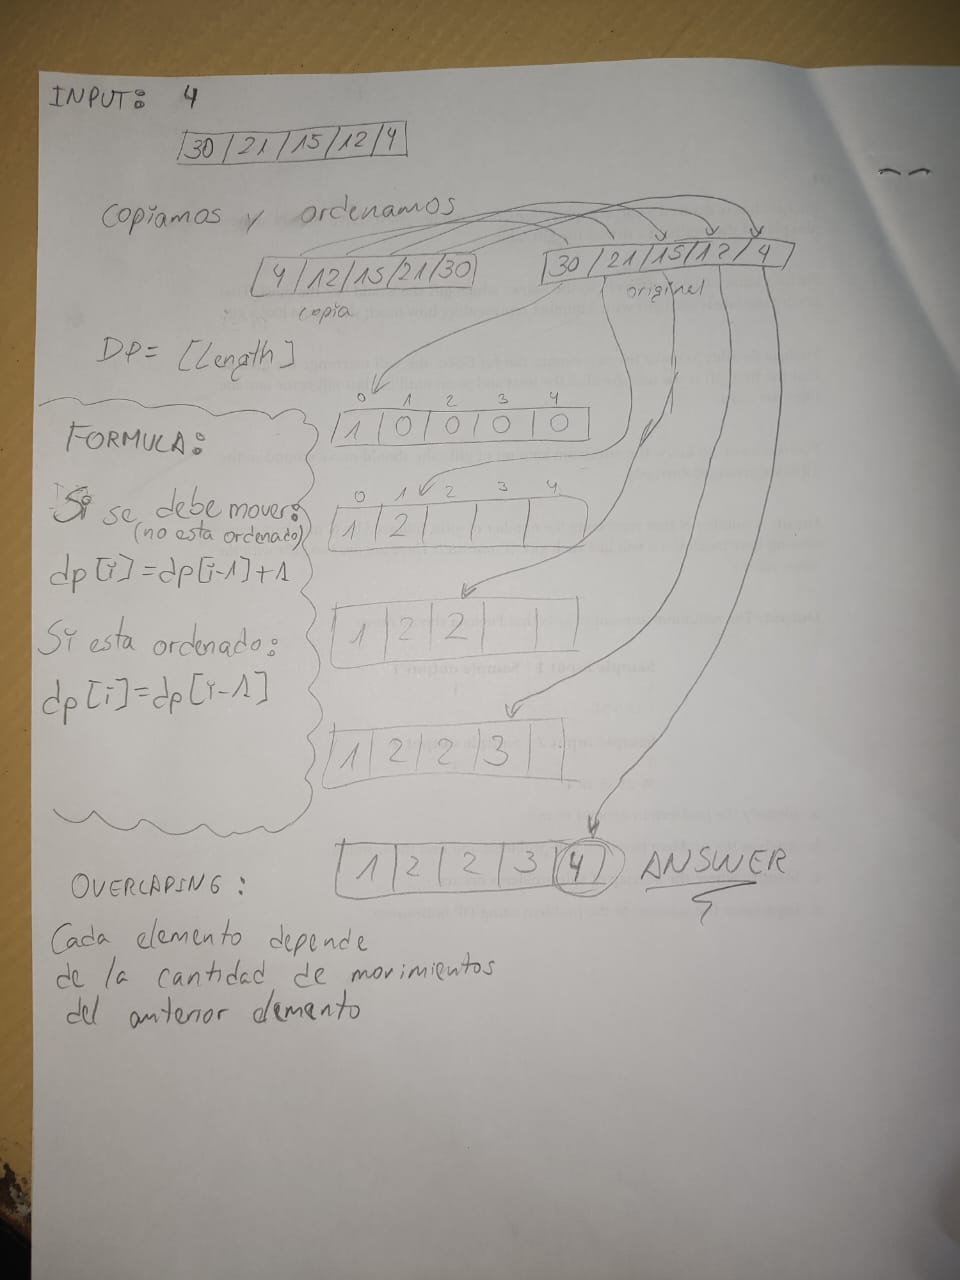 INPUT: 4
30 21 15 12 4
Copiamos y ordenamos
4 12 15 21 30
30 21 15 12 4
copia
original
DP = [Length]
0 1 2 3 4
1 0 0 0 0
FORMULA:
Si se debe mover:
(no esta ordenado)
dp[i]=dp[i-1]+1
Si esta ordenado:
dp[i]=dp[i-1]
0 1 2 3 4
1 2
1 2 2
1 2 2 3
1 2 2 3 4 ANSWER
OVERLAPING:
Cada elemento depende
de la cantidad de movimientos
del anterior elemento